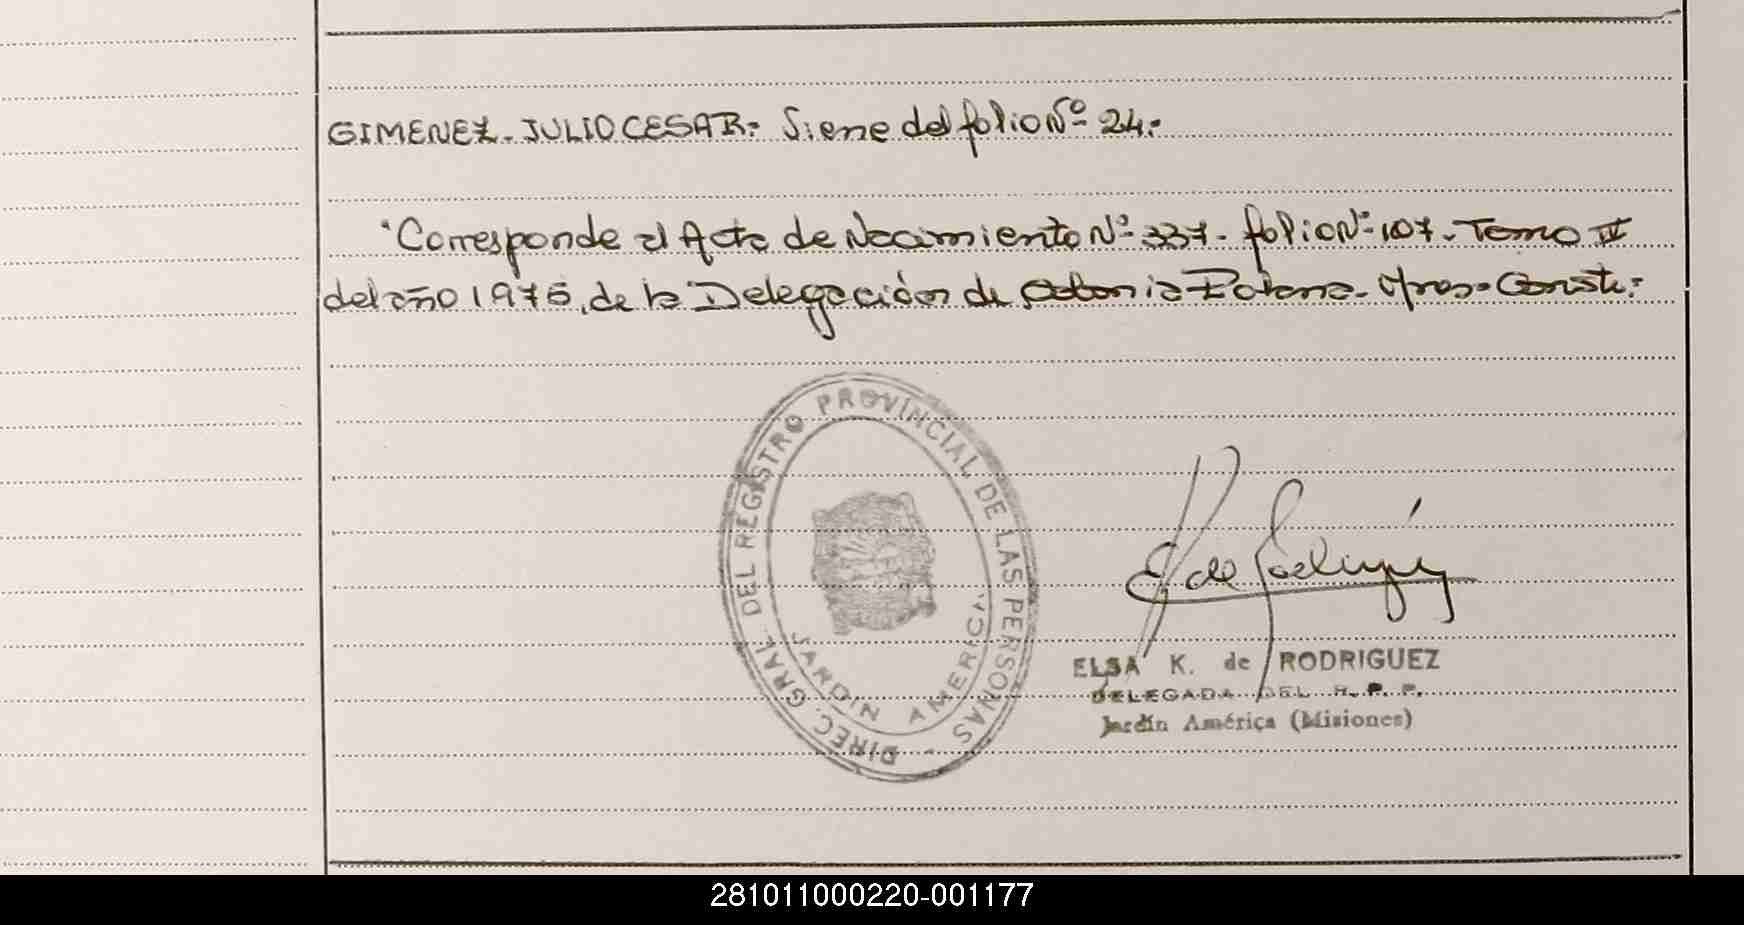 GIMENEZ. JULIO CESAR: Viene del folio Nº 24.-
"Corresponde al Acta de Nacimiento Nº 337. folio Nº 107. Tomo II
del año 1975, de la Delegación de Colonia Polana. Mnes. Conste.-
DIREC. GRAL. DEL REGISTRO PROVINCIAL DE LAS PERSONAS -
JARDIN AMERICA
E K de Rodríguez
ELSA K. de RODRIGUEZ
DELEGADA DEL R. P. P.
Jardín América (Misiones)
281011000220-001177